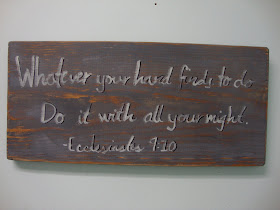 Whatever your hand finds to do
Do it with all your might.
-Ecclesiastes 9:10